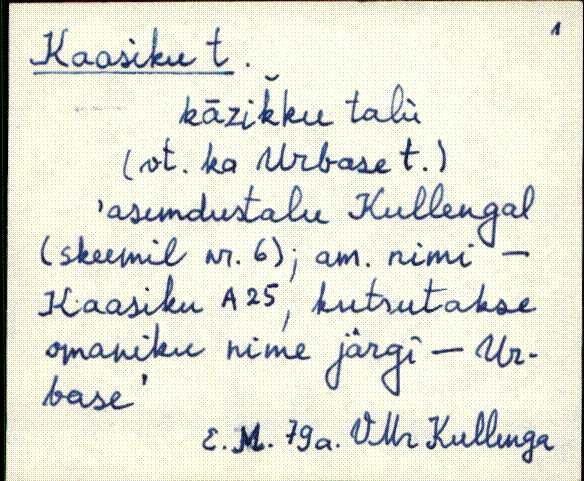 1
Kaasiku t.
kāzik̆ku talù
(vt. ka Urbase t.)
'asundustalu Kullengal
(skeemil nr. 6); am. nimi –
Kaasiku A 25, kutsutakse
omaniku nime järgi – Ur-
base'
E. M. 79a. VMr Kullenga